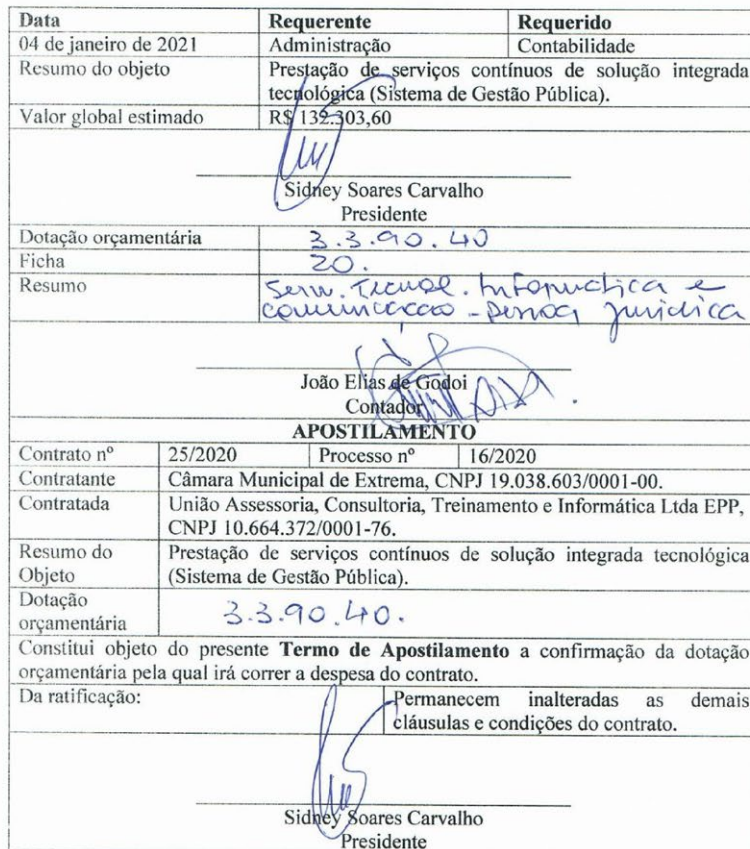 Data Requerente Requerido
04 de janeiro de 2021 Administração Contabilidade
Resumo do objeto Prestação de serviços contínuos de solução integrada
tecnológica (Sistema de Gestão Pública).
Valor global estimado R$ 132.303,60
Sidney Soares Carvalho
Presidente
Dotação orçamentária 3.3.90.40
Ficha 20.
Resumo Serv. Tecnol. Informatica e
comunicacao - pessoa juridica
João Elias de Godoi
Contador
APOSTILAMENTO
Contrato nº 25/2020 Processo nº 16/2020
Contratante Câmara Municipal de Extrema, CNPJ 19.038.603/0001-00.
Contratada União Assessoria, Consultoria, Treinamento e Informática Ltda EPP,
CNPJ 10.664.372/0001-76.
Resumo do Prestação de serviços contínuos de solução integrada tecnológica
Objeto (Sistema de Gestão Pública).
Dotação
orçamentária 3.3.90.40.
Constitui objeto do presente Termo de Apostilamento a confirmação da dotação
orçamentária pela qual irá correr a despesa do contrato.
Da ratificação: Permanecem inalteradas as demais
cláusulas e condições do contrato.
Sidney Soares Carvalho
Presidente